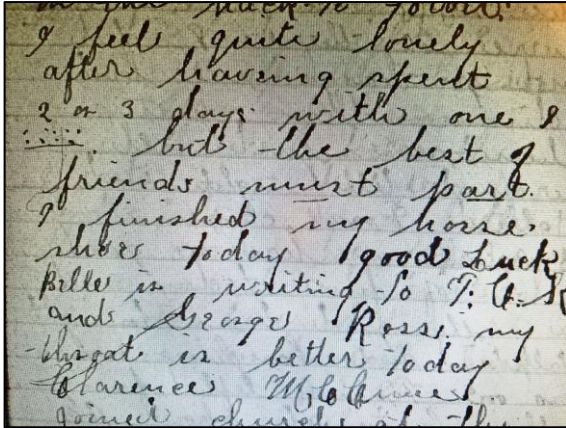 I feel quite lonely
after haveing spent
2 or 3 days with one I
but the best of
friends must part.
I finished my horse
shoe today good Luck
Belle is writing to T.
and George Ross. my
throat is better today
Clarence
joined church at the